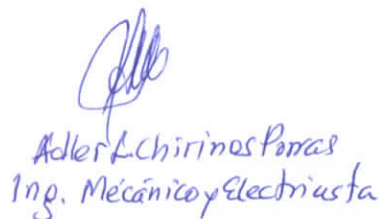 Adler L. Chirinos Porras
Ing. Mecánico y Electricista